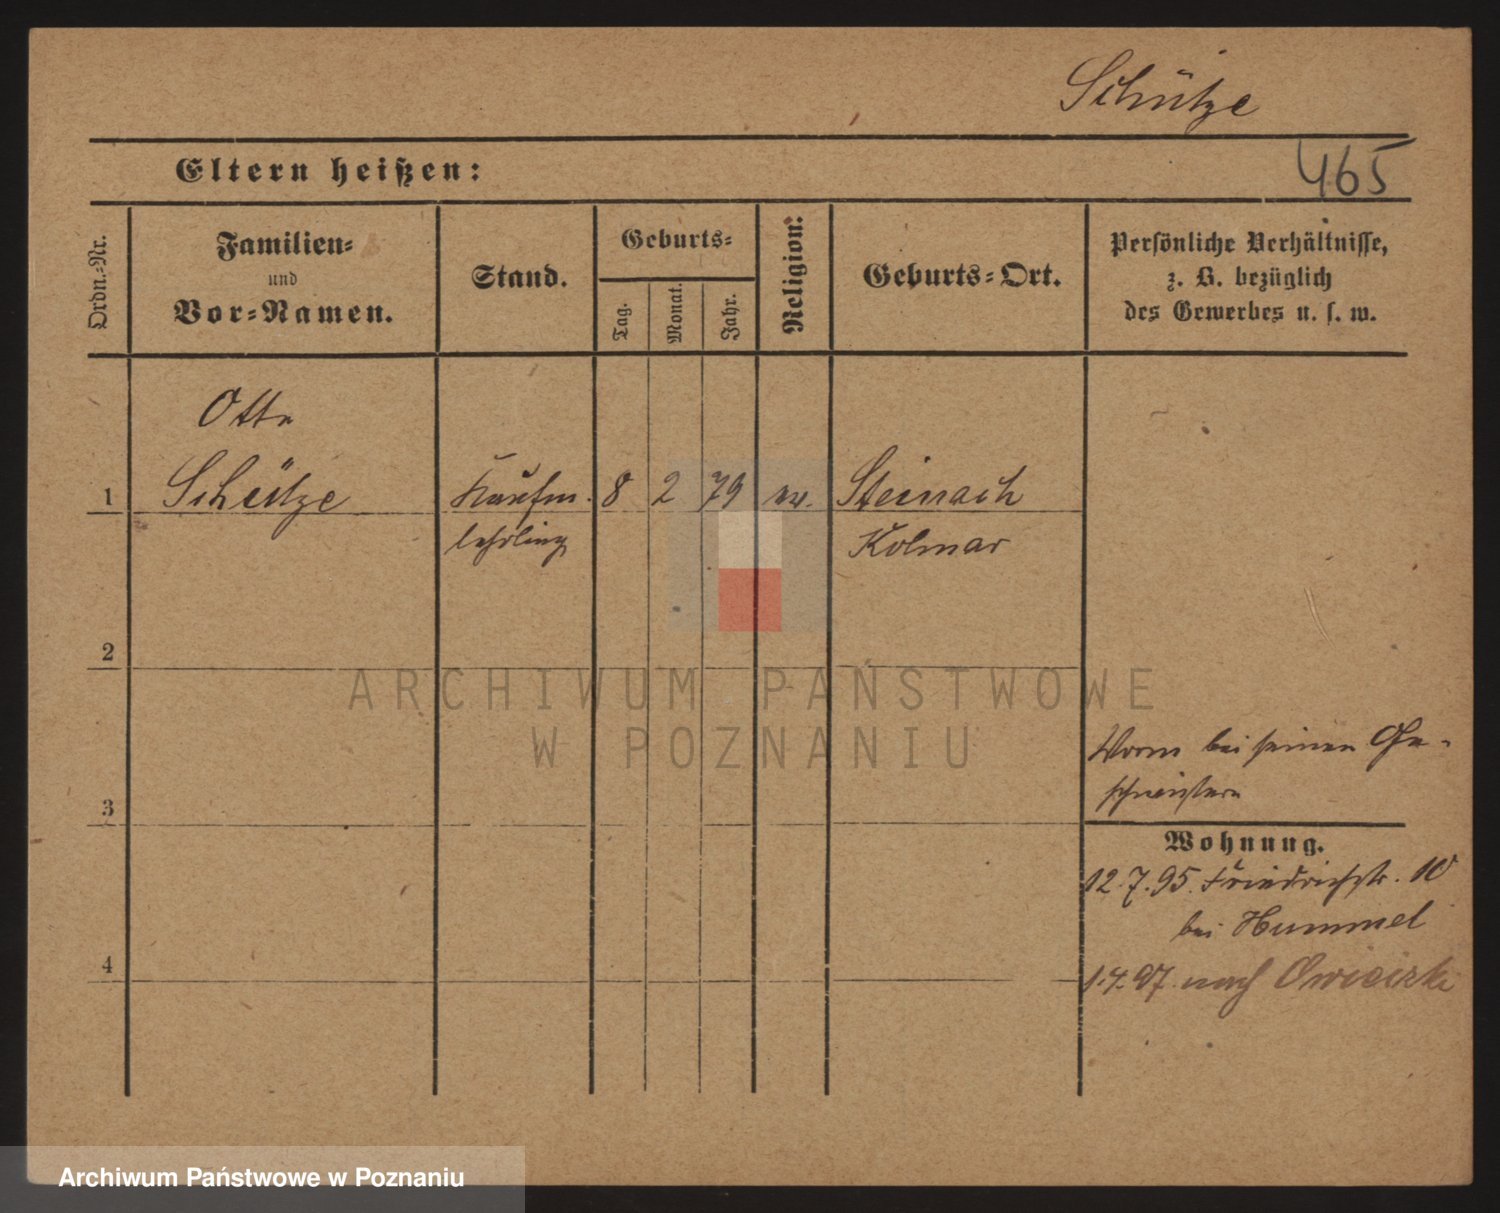 Schütze
465
Eltern heißen:
Ordn.-Nr.
Familien-
und
Vor-Namen.
Stand.
Geburts-
Tag.
Monat.
Jahr.
Religion.
Geburts-Ort.
Persönliche Verhältnisse,
z. B. bezüglich
des Gewerbes u. s. w.
Otto
1 Schütze Kaufm. 8 2 79 ev. Steinach
lehrling Kolmar
2
ARCHIWUM PAŃSTWOWE
W POZNANIU
bei seinen Ge-
schwistern
3
Wohnung.
12.7.95. Friedrichstr. 10
bei Hummel
4
1.4.97. nach
Archiwum Państwowe w Poznaniu